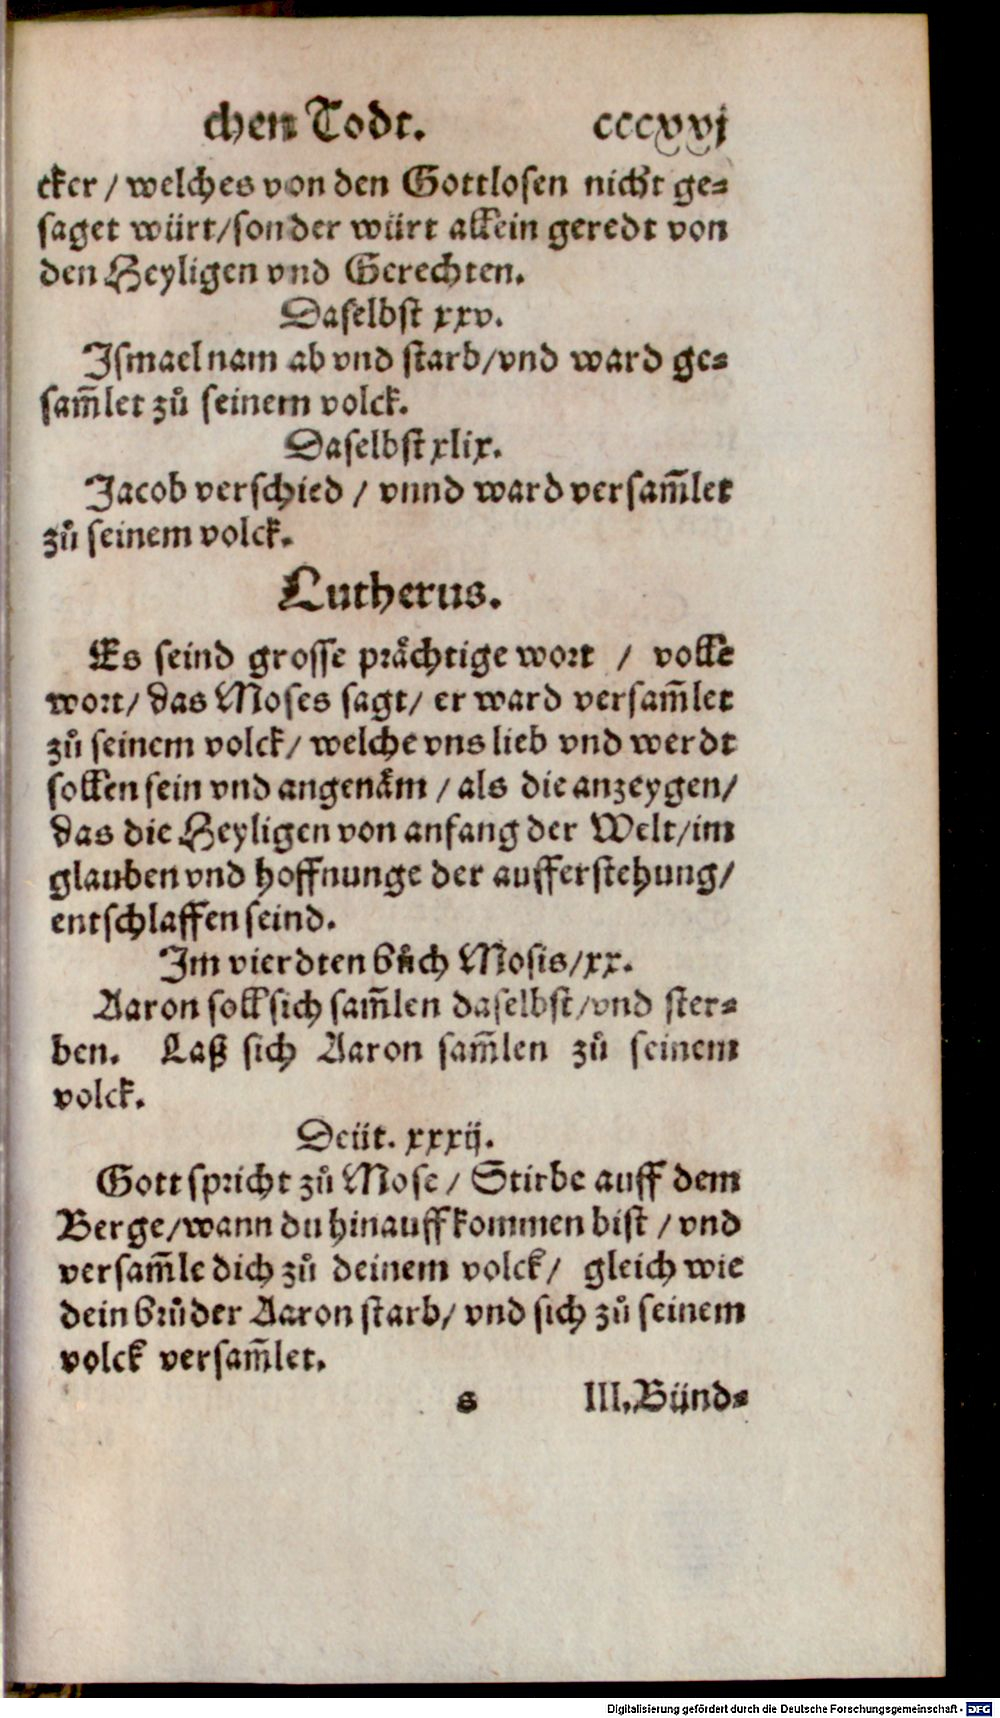 chen Todt. cccxxvj
cker / welches von den Gottlosen nicht ge⸗
saget würt/sonder würt allein geredt von
den Heyligen vnd Gerechten.
Daselbst xxv.
Ismael nam ab vnd starb/vnd ward ge⸗
sam̃let zů seinem volck.
Daselbst xlix.
Jacob verschied / vnnd ward versam̃let
zů seinem volck.
Lutherus.
Es seind grosse prächtige wort / volle
wort/ das Moses sagt/ er ward versam̃let
zů seinem volck/ welche vns lieb vnd werdt
sollen sein vnd angenäm / als die anzeygen/
das die Heyligen von anfang der Welt/im
glauben vnd hoffnunge der aufferstehung/
entschlaffen seind.
Im vierdten bůch Mosis/xx.
Aaron soll sich sam̃len daselbst/vnd ster⸗
ben. Laß sich Aaron sam̃len zů seinem
volck.
Deüt. xxxij.
Gott spricht zů Mose / Stirbe auff dem
Berge/wann du hinauff kommen bist / vnd
versam̃le dich zů deinem volck/ gleich wie
dein brůder Aaron starb/ vnd sich zů seinem
volck versam̃let.
s III. Bünd⸗
Digitalisierung gefördert durch die Deutsche Forschungsgemeinschaft - DFG